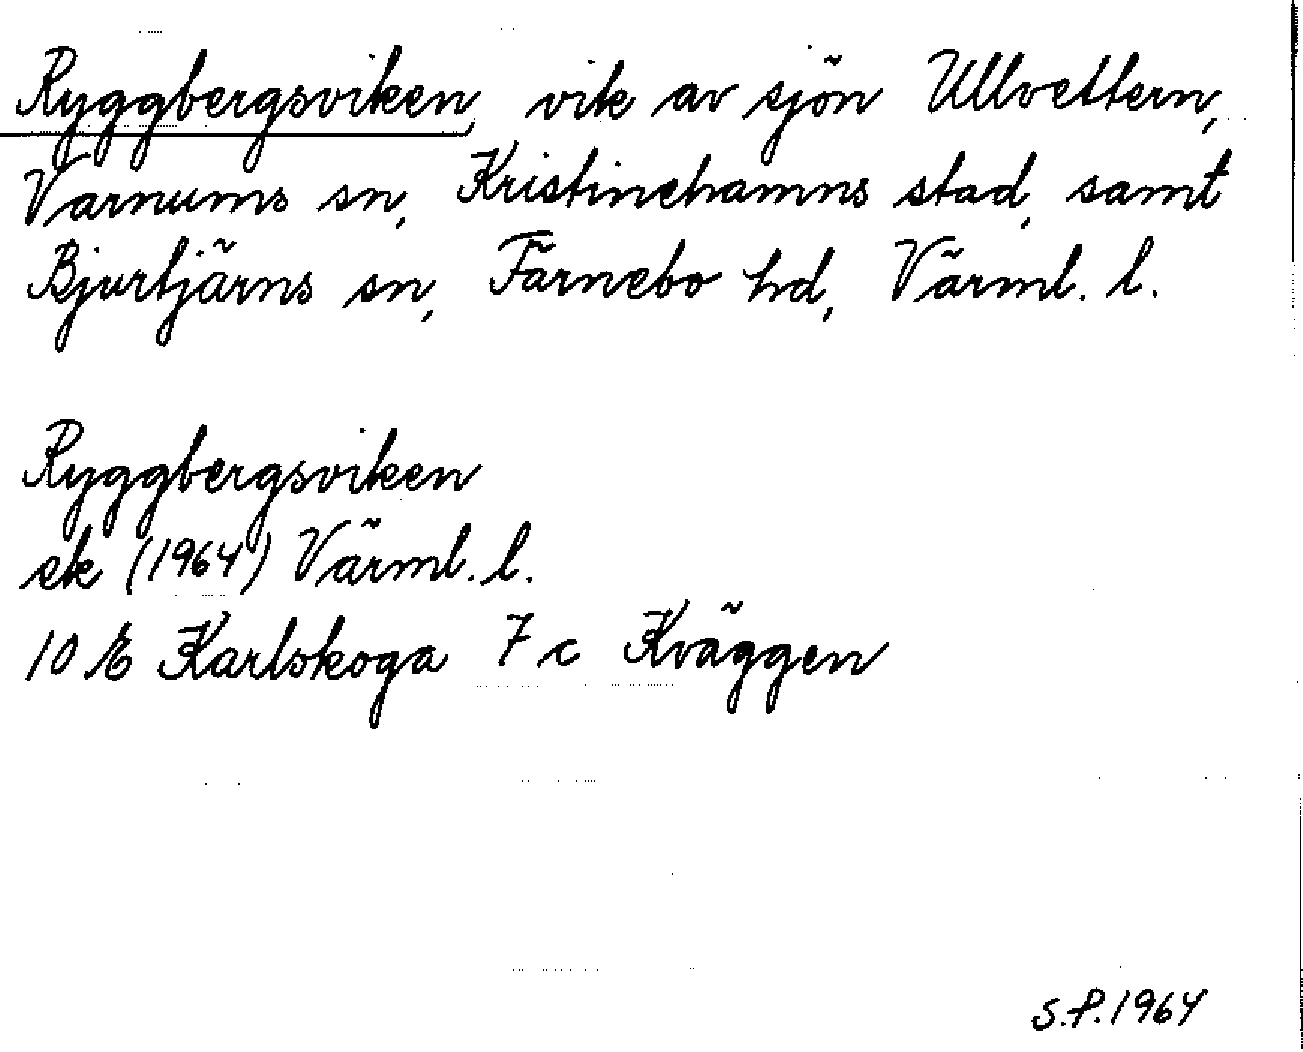 Ryggbergsviken, vik av sjön Ullvettern,
Varnums sn, Kristinehamns stad, samt
Bjurtjärns sn, Färnebo hd, Värml. l.
Ryggbergsviken
ek (1964) Värml. l.
10 E Karlskoga 7 c Kväggen
S.P. 1964